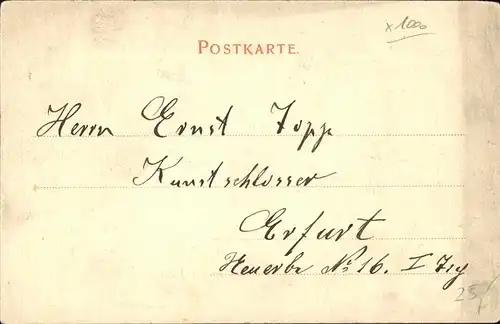 x1000
POSTKARTE.
Herrn Ernst Topp
Kunstschlosser
Erfurt
Neuerbe No 16. I
25